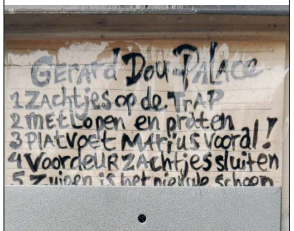 Gerard Dou-Palace
1 Zachtjes op de Trap
2 met lopen en praten
3 Platvoet Marius vooral!
4 Voordeur Zachtjes sluiten
5 Zuipen is het nieuwe schoon